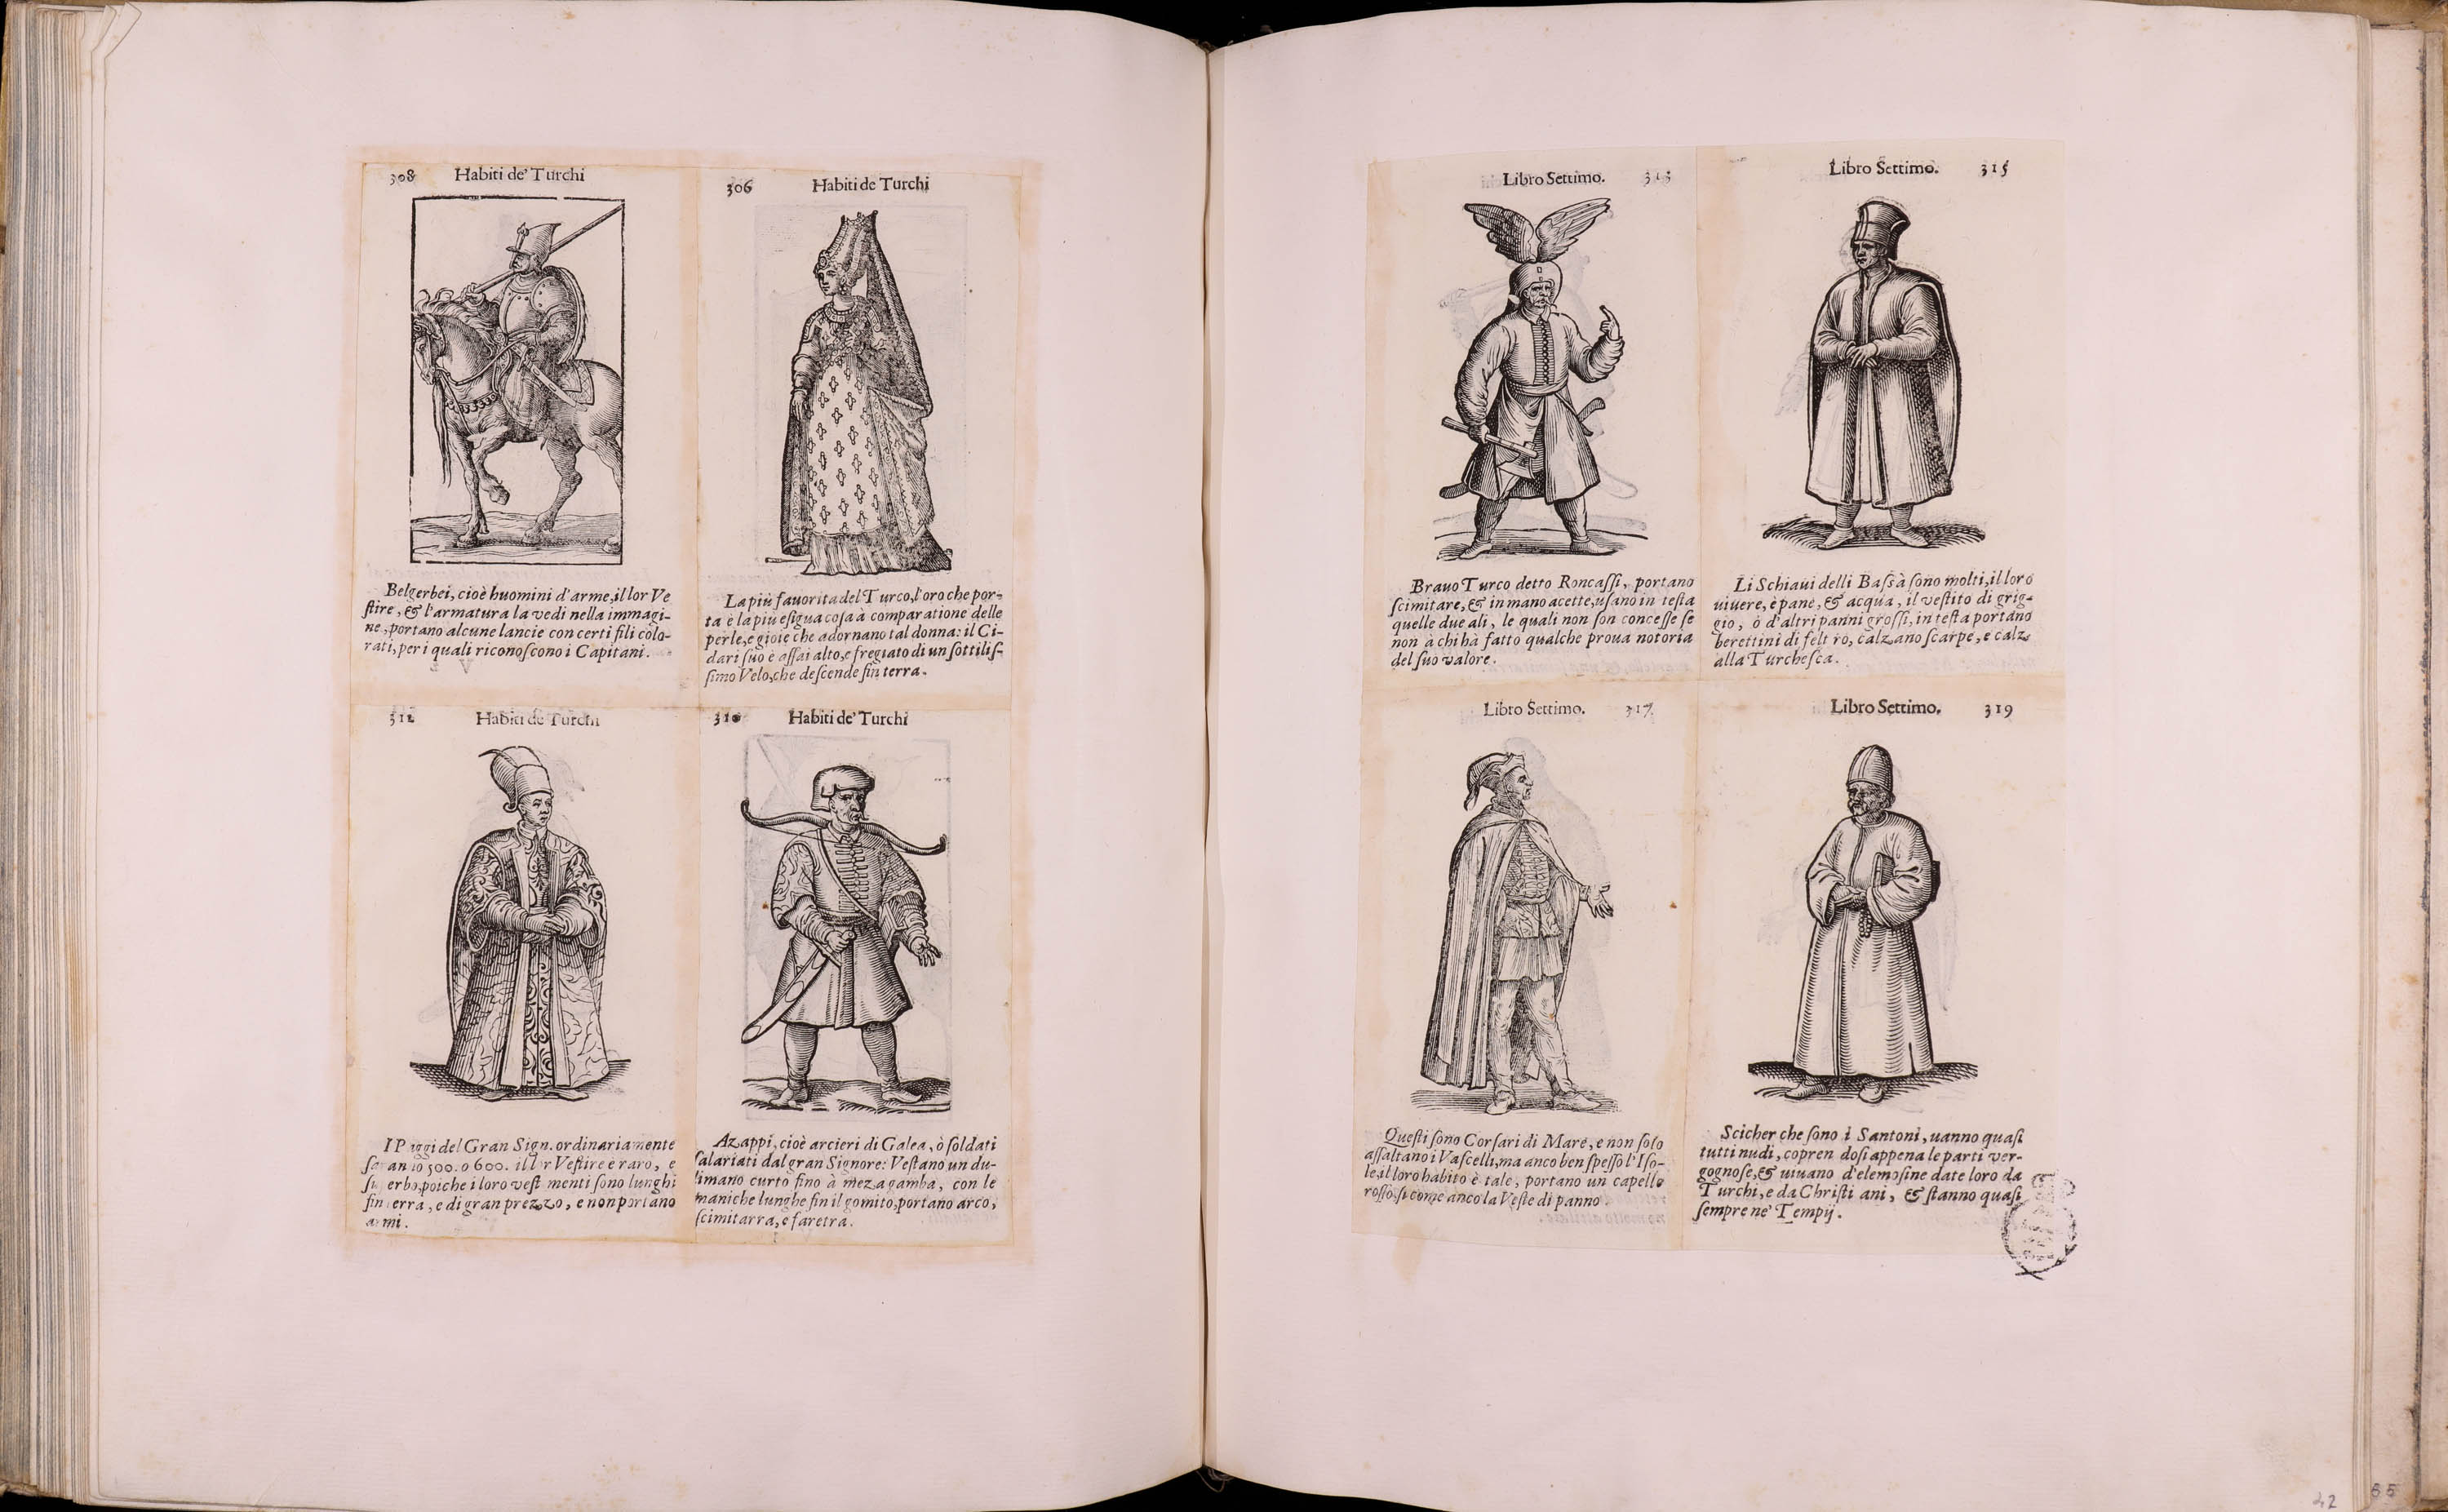 308 Habiti de' Turchi
Belgerbei, cioè huomini d'arme, il lor Ve
ſtire, & l'armatura la vedi nella immagi-
ne, portano alcune lancie con certi fili colo-
rati, per i quali riconoſcono i Capitani.
306 Habiti de Turchi
La più fauorita del Turco, l'oro che por-
ta è la più eſigua coſa à comparatione delle
perle, e gioie che adornano tal donna: il Ci-
dari ſuo è aſſai alto, e fregiato di un ſottiliſ-
ſimo Velo, che deſcende fin terra.
312 Habiti de Turchi
I Paggi del Gran Sign. ordinariamente
ſaran io 500. o 600. il lor Veſtire è raro, e
ſuperbo, poiche i loro veſtimenti ſono lunghi
fin terra, e di gran prezzo, e non portano
armi.
310 Habiti de' Turchi
Azappi, cioè arcieri di Galea, ò ſoldati
ſalariati dal gran Signore: Veſtano un du-
limano curto fino à meza gamba, con le
maniche lunghe fin il gomito, portano arco,
ſcimitarra, e faretra.
Libro Settimo. 313
Brauo Turco detto Roncaſſi, portano
ſcimitare, & in mano acette, uſano in teſta
quelle due ali, le quali non ſon conceſſe ſe
non à chi hà fatto qualche proua notoria
del ſuo valore.
Libro Settimo. 315
Li Schiaui delli Baſsà ſono molti, il loro
uiuere, è pane, & acqua, il veſtito di grig-
gio, ò d'altri panni groſſi, in teſta portano
berettini di felt ro, calzano ſcarpe, e calze
alla Turcheſca.
Libro Settimo. 317
Queſti ſono Corſari di Mare, e non ſolo
aſſaltano i Vaſcelli, ma anco ben ſpeſſo l'Iſo-
le, il loro habito è tale, portano un capello
roſſo, ſi come anco la Veſte di panno.
Libro Settimo. 319
Scicher che ſono i Santoni, uanno quaſi
tutti nudi, copren doſi appena le parti ver-
gognoſe, & uiuano d'elemoſine date loro da
Turchi, e da Chriſti ani, & ſtanno quaſi
ſempre ne' Tempij.
42